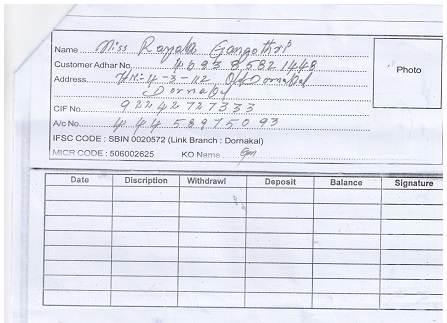 Name Miss Rayala Gangothri
Customer Adhar No. 4693 8582 1448
Photo
Address. H.No: 4-3-42 Dornakal
Dornakal
CIF No. 92242727333
A/c No. 444 58975093
IFSC CODE : SBIN 0020572 (Link Branch : Dornakal)
MICR CODE : 506002625 KO Name
Date Discription Withdrawl Deposit Balance Signature